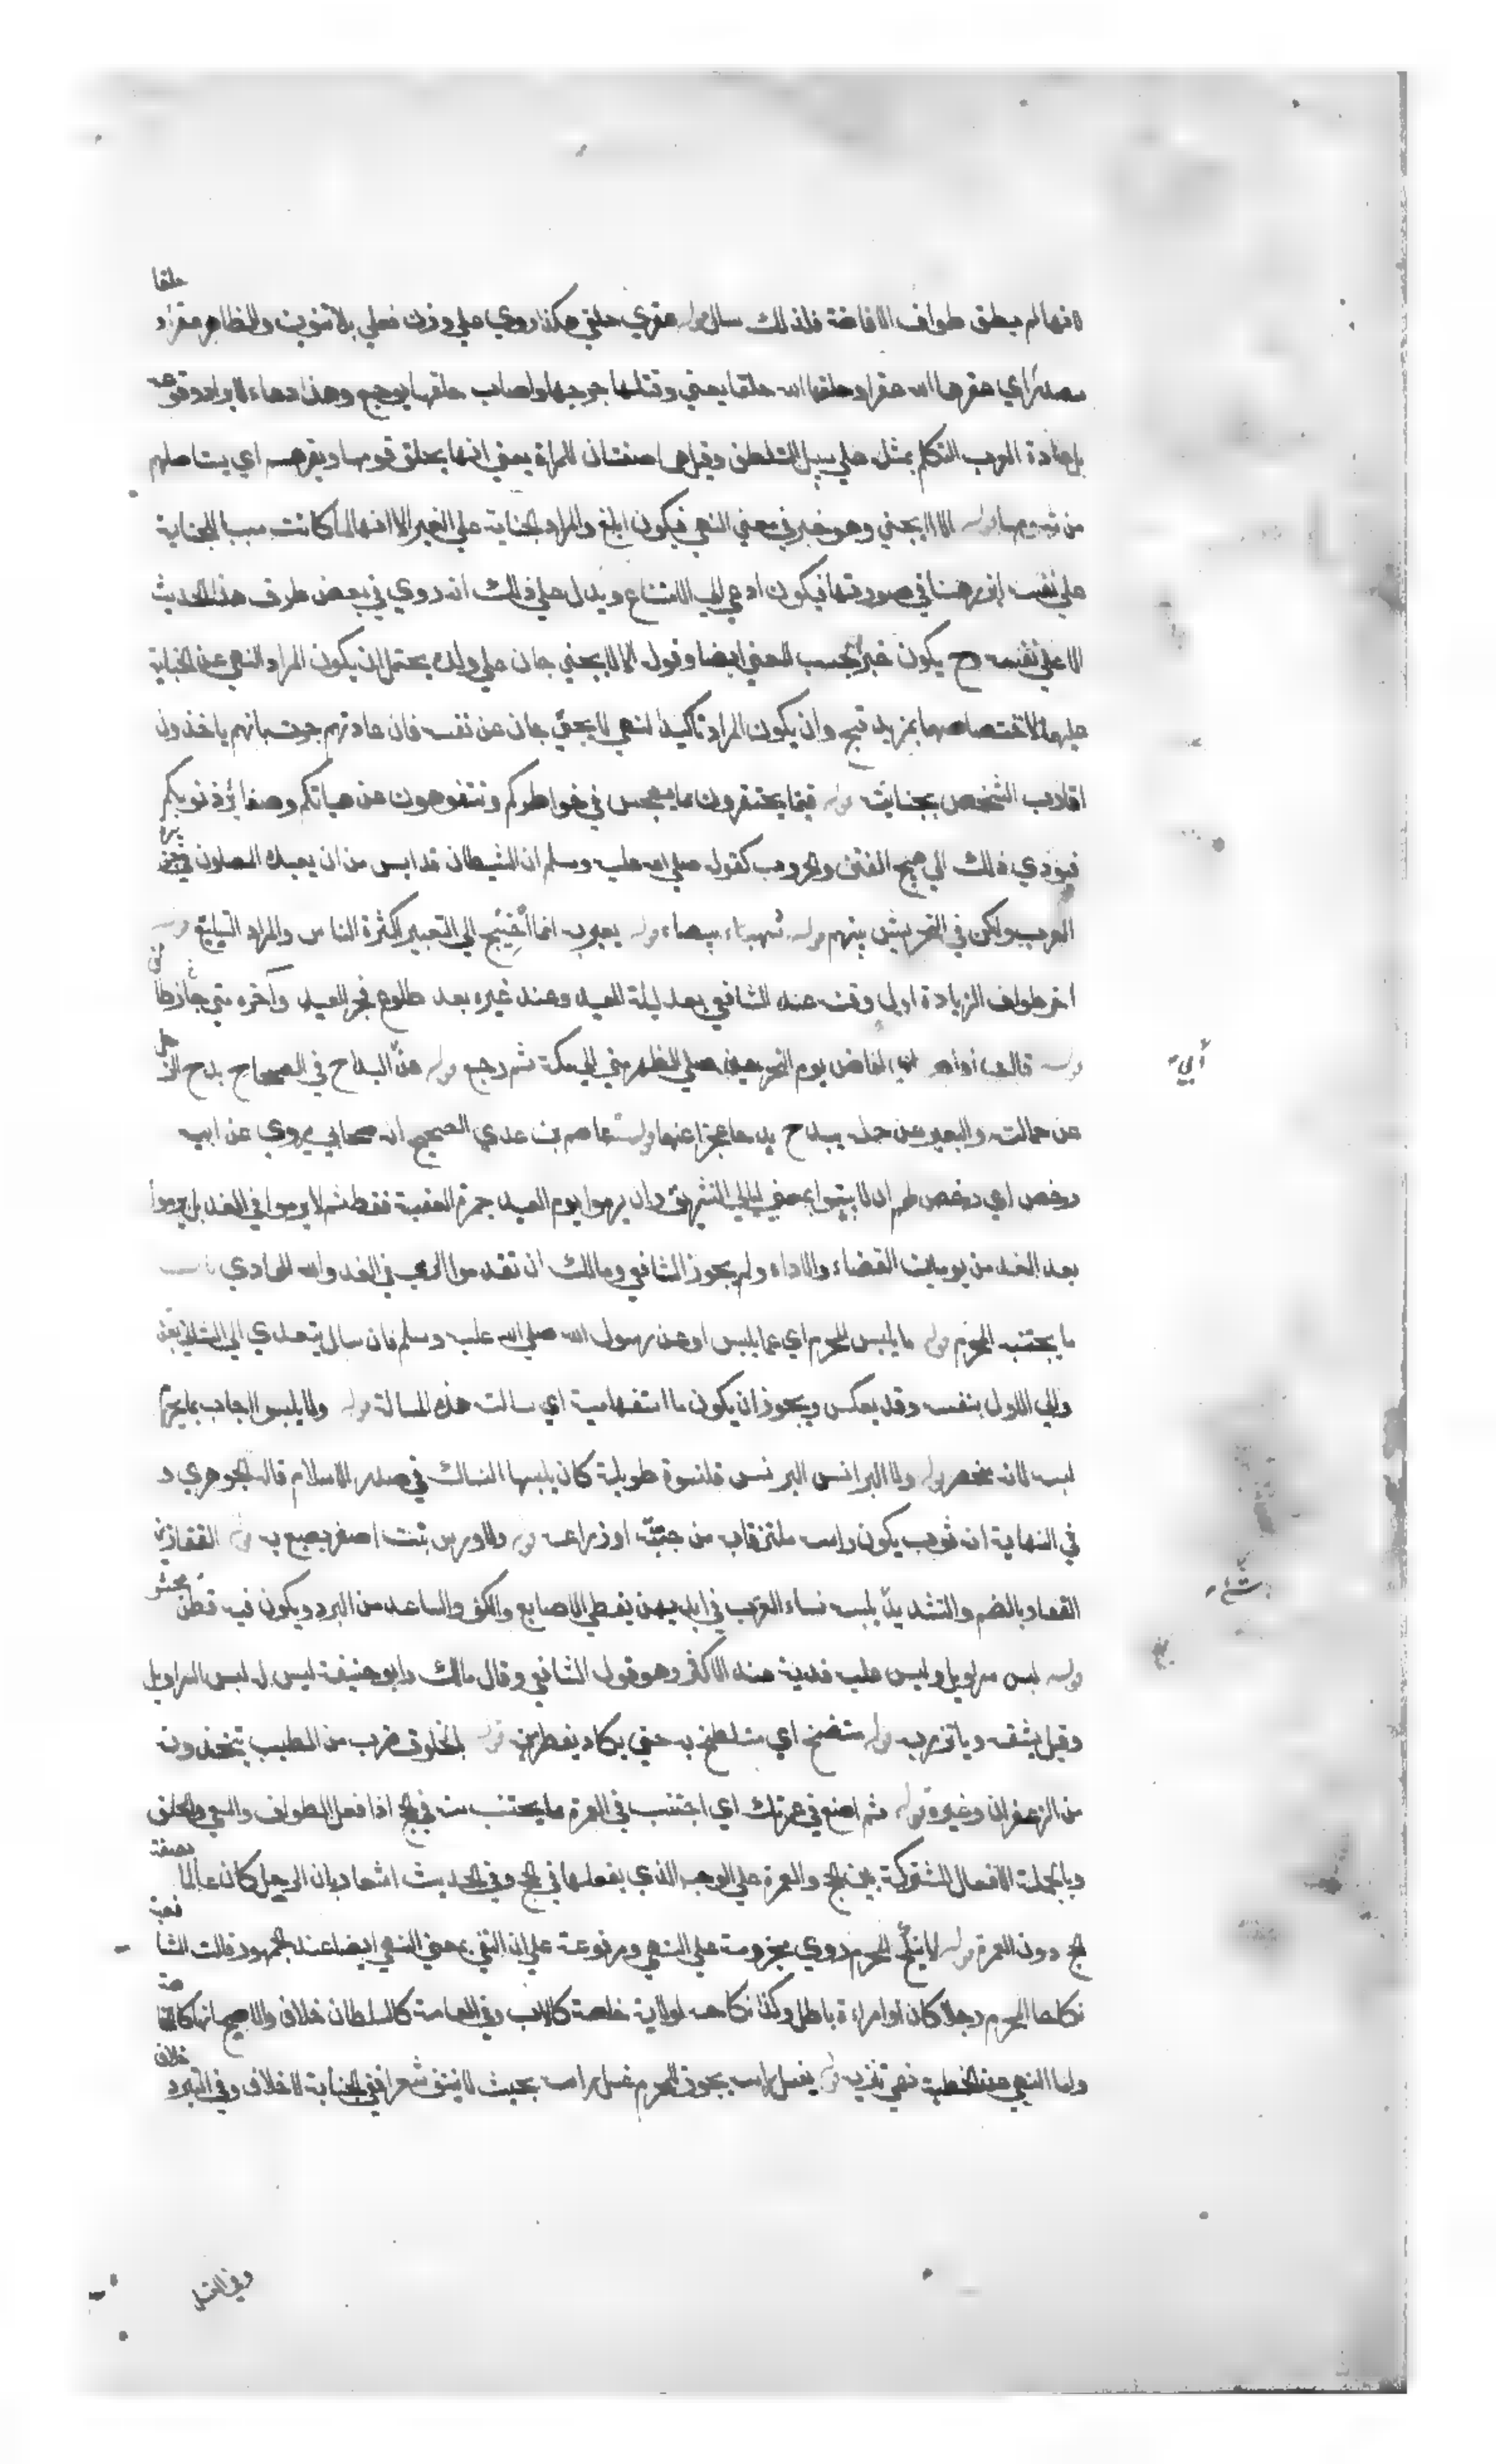 لانها لم يطق طواف الافاضة فلذلك سال قوله عقري حلقي هكذا روي علي وزن فعلي بلا تنوين والظاهر عقرا و حلقا
مصدراي عقرها الله عقرا وحلقها الله حلقا يعني وقتلها جرحها واصاب حلقها بوجع وهذا دعاء لا يراد وقوعه
بل عادة العرب التكلم بمثله علي سبيل التلطف وقيل هما صفتان للمراة يعني انها يحلق قومها ويعقرهم اي يستاصلهم
من شومها قوله الا لا يجني وهو خبر في معني النهي فيكون ابلغ والمراد الجناية علي الغير الا انها لما كانت سببا للجناية
علي نفسه ابرزهنا في صورتها فيكون ادعي الي الامتناع ويدل علي ذلك انه روي في بعض طرف هذا الحديث
الا علي نفسه وح يكون خبرا بحسب المعني ايضا وقوله الا لا يجني جان علي ولده يحتمل ان يكون المراد النهي عن الجناية
عليهما لاختصاصهما بمزيد قبح وان يكون المراد تاكيدا لنهي لا يجني جان عن نفسه فان عادتهم جرت بانهم ياخذون
اقارب الشخص بجنايته قوله فيما يحتقرون مما يهجس في خواطركم وتتفوهون عن هياتكم وصغائر ذنوبكم
فيؤدي ذلك الي هيج الفتن والحروب كقوله صلي الله عليه وسلم ان الشيطان قد ايس من ان يعبده المصلون في جزيرة
العرب ولكن في التحريش بينهم قوله شهباء بيضاء قوله يعبر انما احتيج الي التعبير لكثرة الناس والمراد التبليغ قوله
اخر طواف الزيادة اول وقته عند الشافعي بعد ليلة العيد وعند غيره بعد طلوع فجر العيد وآخره متي جاز طاف
قوله قال افاض يوم النحر حين صلي الظهر مني الي مكة ثم رجع قوله عن البداح في الصحاح بدح الرجل
عن حمالته والبعير عن حمله يبدح بدحا عجزا عنهما قوله عاصم بن عدي الصحيح انه صحابي يروي عن ابيه
رخص اي رخص لهم ان لا يبيتوا بمني ليالي التشريق وان يرموا يوم العيد جمرة العقبة فقط ثم لا يرموا في الغد بل يرموا
بعد الغد من يومين القضاء والاداء ولم يجوز الشافعي ومالك ان تقدموا الرمي في الغد والله الهادي باب
ما يجتنبه المحرم قوله ما يلبس المحرم اي عما يلبس او عن رسول الله صلي الله عليه وسلم فان سال يتعدي الي الثاني بعن
والي الاول بنفسه وقد يعكس ويجوز ان يكون ما استفهامية اي سالت هذه المسالة قوله ولا يلبسوا اجاب بما يحرم
لبسه لانه منحصر قوله ولا البرانس البرنس قلنسوة طويلة كان يلبسها النساك في صدر الاسلام قاله الجوهري و
في النهاية انه ثوب يكون راسه ملتزقا به من جبة او ذراعه قوله ولا ورس نبت اصفر يصبغ به قوله القفازين
القفاز بالضم والتشديد يلبسه نساء العرب في ايديهن يغطي الاصابع والكف والساعد من البرد ويكون فيه قطن محشو
قوله لبس سراويل وليس عليه فدية عند الاكثر وهو قول الشافعي وقال مالك وابو حنيفة ليس له لبس السراويل
وقيل يشقه وياتزر به قوله متضمخ اي متلطخ به حتي يكاد يقطر منه قوله بالخلوق ضرب من الطيب يتخذ
من الزعفران وغيره قوله ثم اصنع في عمرتك اي اجتنب في العمرة ما يجتنب منه في الحج اذا فعل الطواف والسعي والحلق
وبالجملة الافعال المشتركة بين الحج والعمرة علي الوجه الذي يفعلها في الحج وفي الحديث اشعار بان الرجل كان عالما بصفة
الحج دون العمرة قوله لا ينكح المحرم روي مجزومة علي النهي ومرفوعة علي ان النفي بمعني النهي ايضا عند الجمهور قالت الشافعية
نكاح المحرم رجلا كان او امراة باطل وكذا نكاحه لولاية خاصة كالاب وفي العامة كالسلطان خلاف والاصح انها كالخاصة
واما النهي عن الخطبة فنهي تنزيه قوله يغسل راسه يجوز للمحرم غسل راسه بحيث لا ينتف شعرا ففي الجنابة لا خلاف وفي التبرد خلاف
وفي الغسل